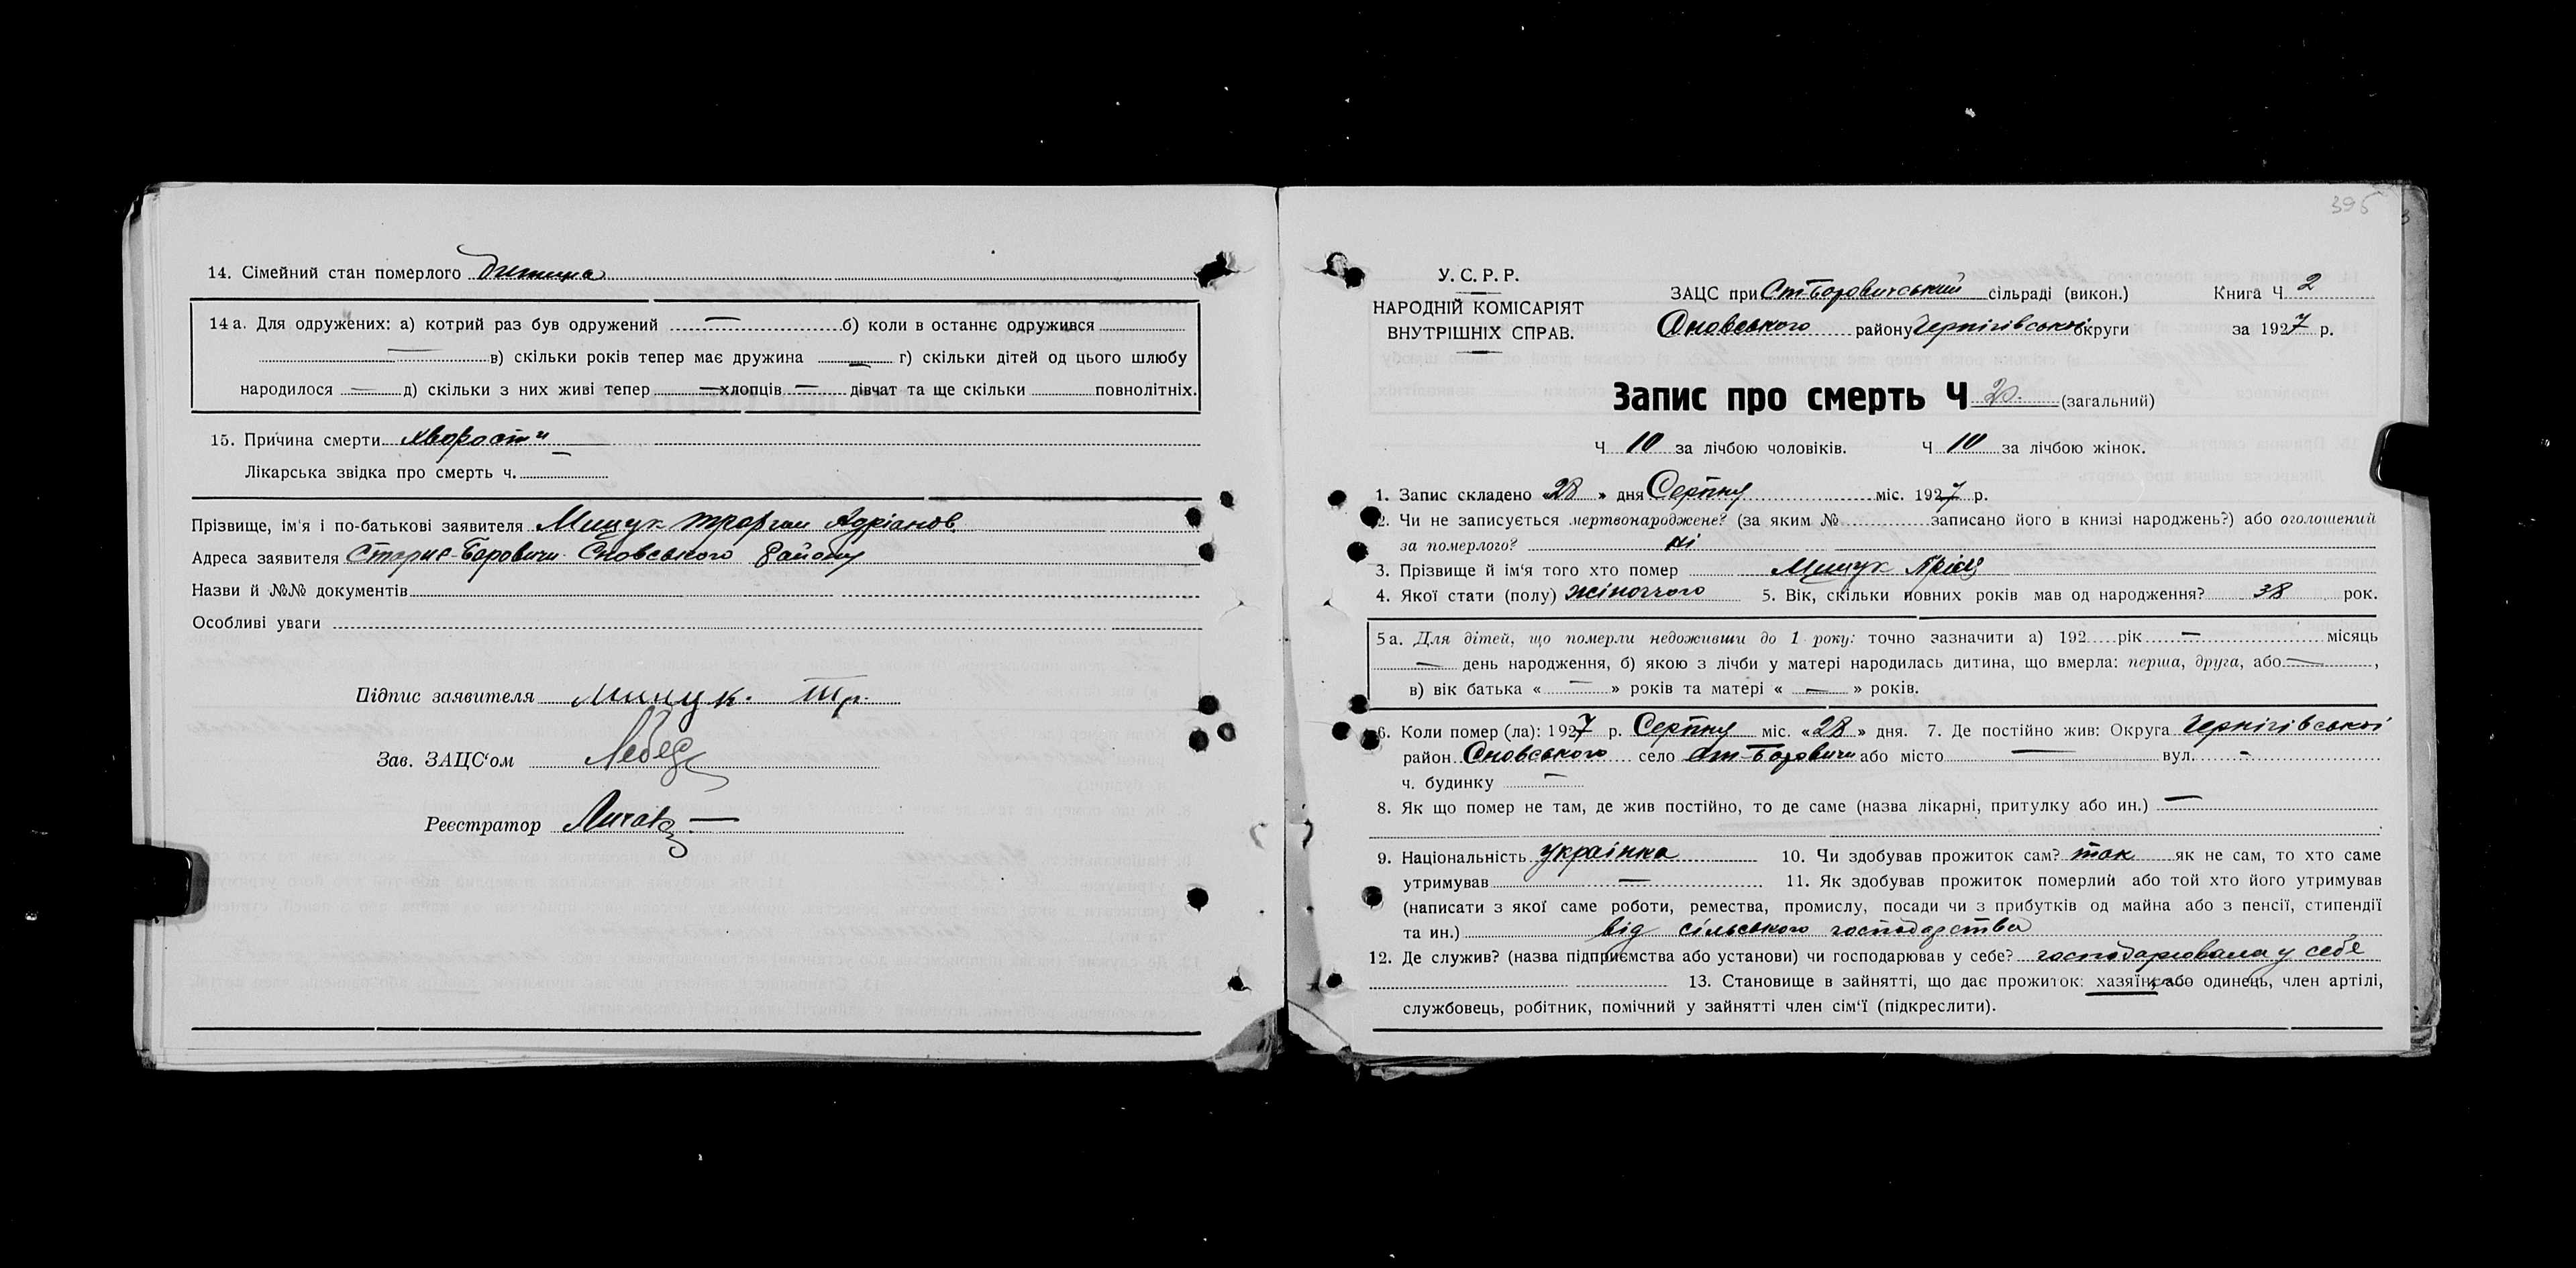 14. Сімейний стан померлого дитина
14 а. Для одружених: а) котрий раз був одружений — б) коли в останнє одружився
— в) скільки років тепер має дружина — г) скільки дітей од цього шлюбу
народилося — д) скільки з них живі тепер — хлопців — дівчат та ще скільки повнолітніх.
15. Причина смерти хворости
Лікарська звідка про смерть ч. —
Прізвище, ім'я і по-батькові заявителя Мищук Адріанов
Адреса заявителя Старие-Боровичи Сновського району
Назви й №№ документів
Особливі уваги
Підпис заявителя Мищук. Тр.
Зав. ЗАЦС'ом
Реєстратор
395
У.С.Р.Р.
НАРОДНІЙ КОМІСАРІЯТ
ВНУТРІШНІХ СПРАВ.
ЗАЦС при Ст-Боровичський сільраді (викон.) Книга Ч. 2
Сновського району Чернігівської округи за 1927 р.
Запис про смерть Ч 20. (загальний)
Ч 10 за лічбою чоловіків. Ч 10 за лічбою жінок.
1. Запис складено «28» дня Серпну міс. 1927 р.
2. Чи не записується мертвонароджене? (за яким № записано його в книзі народжень?) або оголошений
за померлого? ні
3. Прізвище й ім'я того хто помер Мищук
4. Якої статі (полу) жіночого 5. Вік, скільки повних років мав од народження? 38 рок.
5 а. Для дітей, що померли недоживши до 1 року: точно зазначити а) 192 рік — місяць
— день народження, б) якою з лічби у матері народилась дитина, що вмерла: перша, друга, або —,
в) вік батька « — » років та матері « — » років.
6. Коли помер (ла): 1927 р. Серпну міс. «28» дня. 7. Де постійно жив: Округа Чернігівської
район Сновського село Ст-Боровичи або місто — вул. —
ч. будинку —
8. Як що помер не там, де жив постійно, то де саме (назва лікарні, притулку або ин.) —
9. Національність українка 10. Чи здобував прожиток сам? так як не сам, то хто саме
утримував — 11. Як здобував прожиток померлий або той хто його утримував
(написати з якої саме роботи, ремества, промислу, посади чи з прибутків од майна або з пенсії, стипендії
та ин.) від сільського господарства
12. Де служив? (назва підприємства або установи) чи господарював у себе? господарювала у себе
13. Становище в зайнятті, що дає прожиток: хазяїн або одинець, член артілі,
службовець, робітник, помічний у зайнятті член сім'ї (підкреслити).